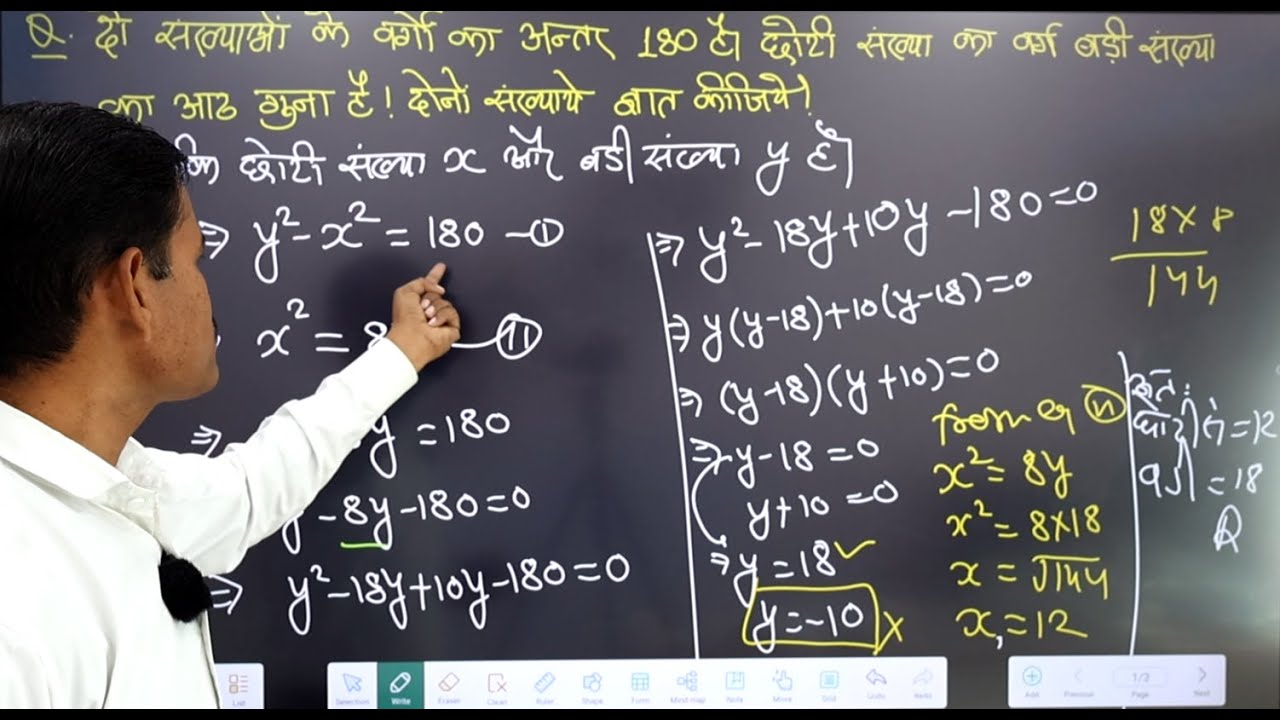 Q. दो संख्याओं के वर्गों का अन्तर 180 है। छोटी संख्या का वर्ग बड़ी संख्या
का आठ गुना है! दोनों संख्यायें ज्ञात कीजिये!
कि छोटी संख्या x और बड़ी संख्या y है।
⇒ y² - x² = 180 —①
x² = 8 —⑪
⇒ y = 180
y - 8y - 180 = 0
⇒ y² - 18y + 10y - 180 = 0
⇒ y² - 18y + 10y - 180 = 0
⇒ y(y-18) + 10(y-18) = 0
⇒ (y-18)(y+10) = 0
⇒ y - 18 = 0
y + 10 = 0
⇒ y = 18 ✓
y = -10 ×
from eq ⑪
x² = 8y
x² = 8×18
x = √144
x = 12
18×8
144
अतः
= 12
= 18
List
Select
Write
Eraser
Clean
Ruler
Shape
Form
Mind map
Note
Move
Grid
Undo
Redo
Add
Previous
1/3
Page
Next